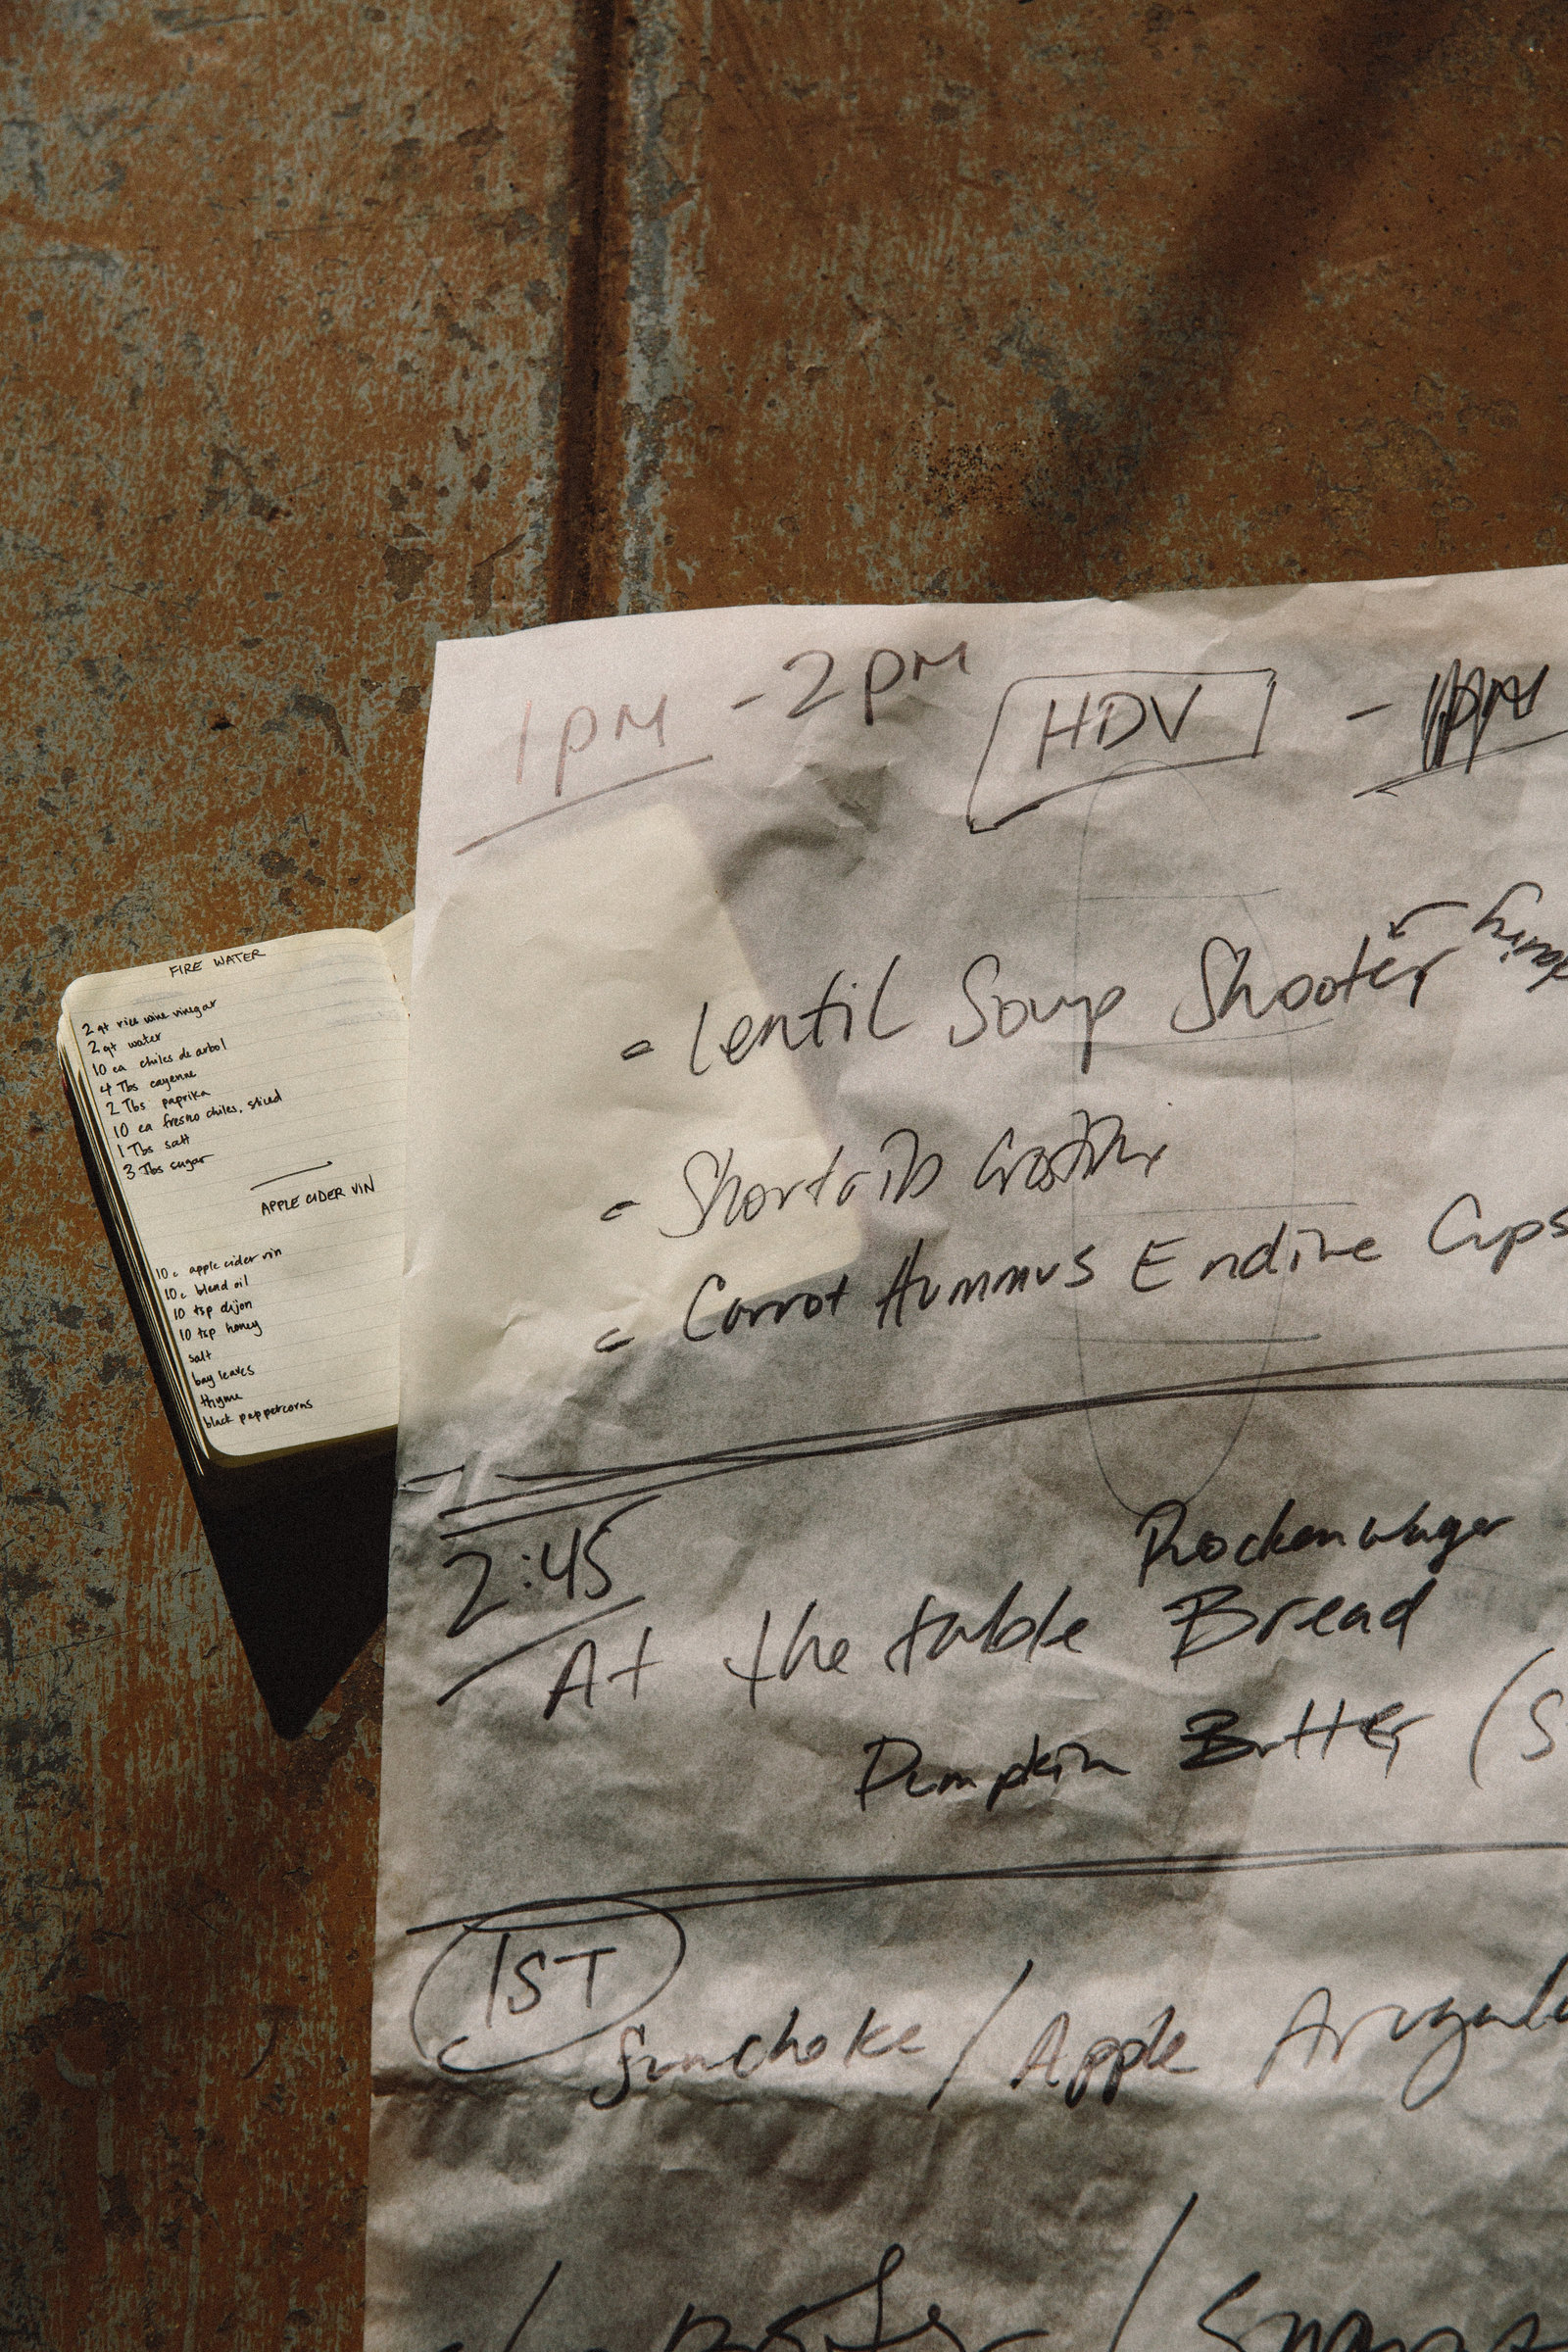 FIRE WATER
2 qt rice wine vinegar
2 qt water
10 ea chiles de arbol
4 Tbs cayenne
2 Tbs paprika
10 ea fresno chiles, sliced
1 Tbs salt
3 Tbs sugar
APPLE CIDER VIN
10 c apple cider vin
10 c blend oil
10 tsp dijon
10 tsp honey
salt
bay leaves
thyme
black peppercorns
1PM - 2PM HDV -
- Lentil Soup Shooter
- Shortrib
- Carrot Hummus Endive Cups
2:45
Rockenwager
At the table Bread
Pumpkin Butter (S
1ST
Sunchoke / Apple Arugula